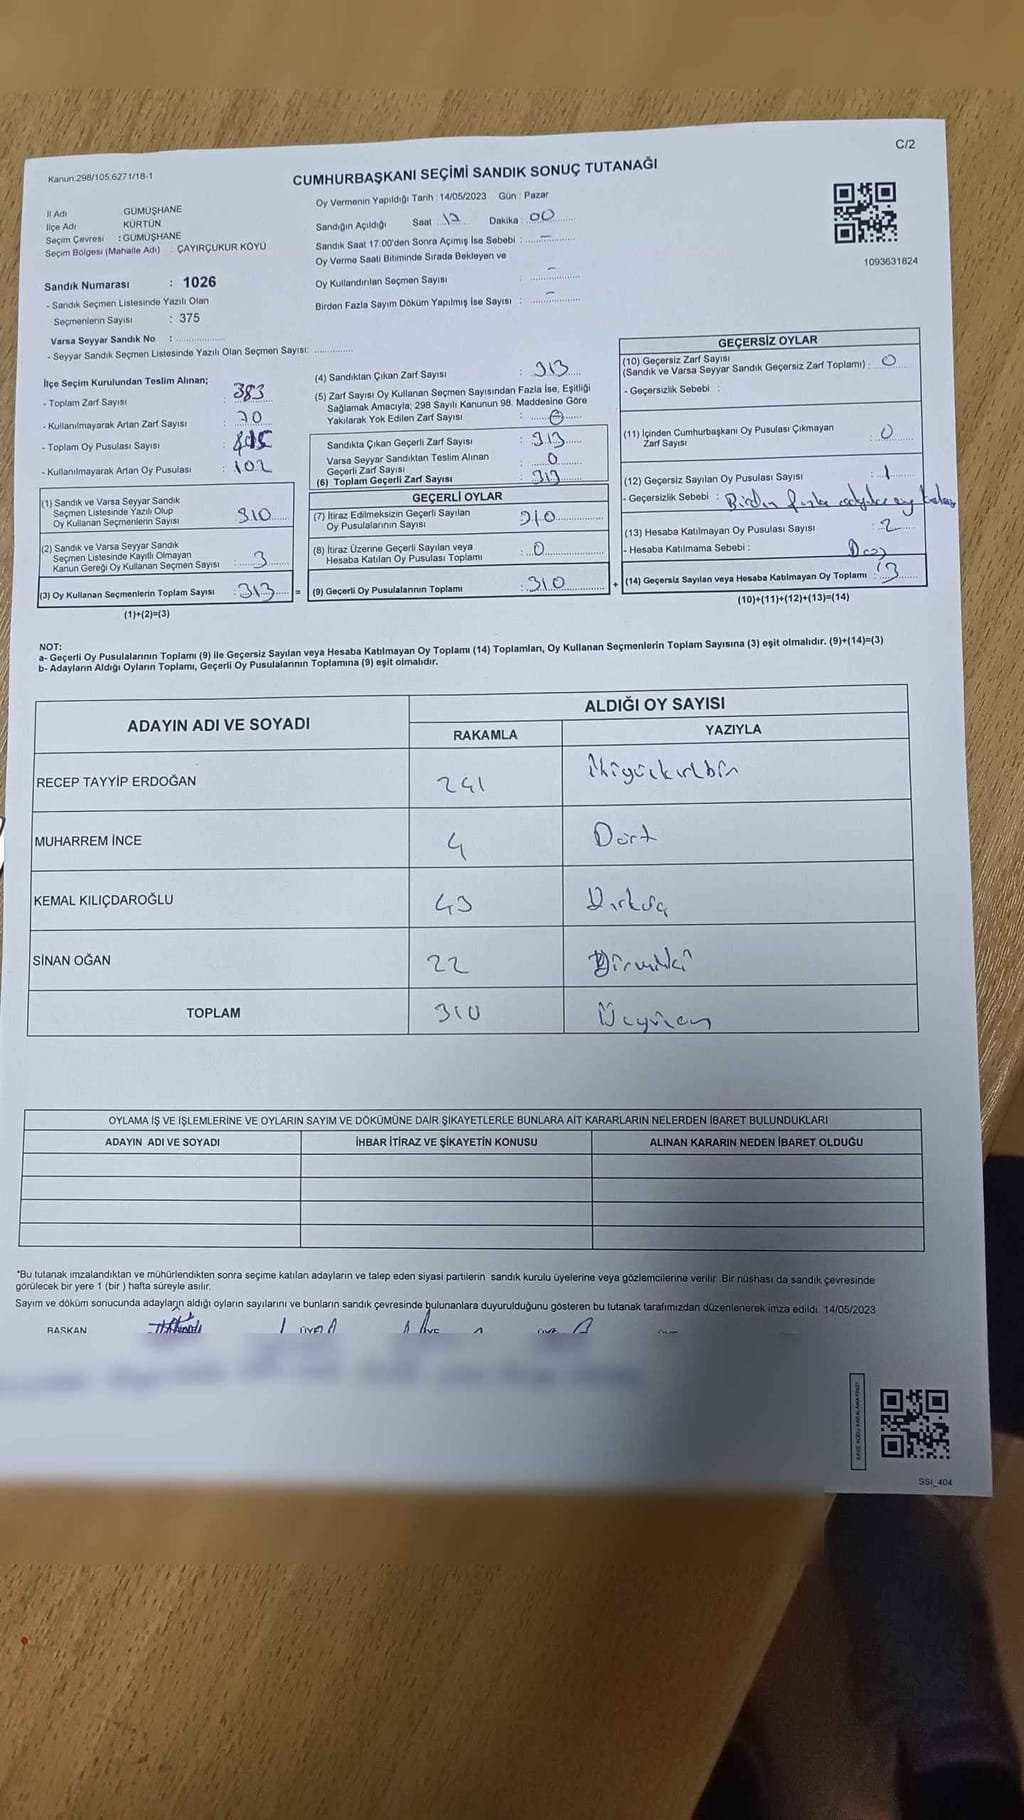 C/2
Kanun:298/105,6271/18-1
CUMHURBAŞKANI SEÇİMİ SANDIK SONUÇ TUTANAĞI
İl Adı GÜMÜŞHANE
İlçe Adı KÜRTÜN
Seçim Çevresi : GÜMÜŞHANE
Seçim Bölgesi (Mahalle Adı) ÇAYIRÇUKUR KÖYÜ
Oy Vermenin Yapıldığı Tarih : 14/05/2023 Gün : Pazar
Sandığın Açıldığı Saat : 17 Dakika : 00
Sandık Saat 17.00'den Sonra Açımış İse Sebebi : —
Oy Verme Saati Bitiminde Sırada Bekleyen ve
Oy Kullandırılan Seçmen Sayısı : —
Birden Fazla Sayım Döküm Yapılmış İse Sayısı : —
1093631824
Sandık Numarası : 1026
- Sandık Seçmen Listesinde Yazılı Olan
Seçmenlerin Sayısı : 375
Varsa Seyyar Sandık No :
- Seyyar Sandık Seçmen Listesinde Yazılı Olan Seçmen Sayısı:
İlçe Seçim Kurulundan Teslim Alınan;
- Toplam Zarf Sayısı : 383
- Kullanılmayarak Artan Zarf Sayısı : 70
- Toplam Oy Pusulası Sayısı :
- Kullanılmayarak Artan Oy Pusulası : 102
(1) Sandık ve Varsa Seyyar Sandık
Seçmen Listesinde Yazılı Olup
Oy Kullanan Seçmenlerin Sayısı : 310
(2) Sandık ve Varsa Seyyar Sandık
Seçmen Listesinde Kayıtlı Olmayan
Kanun Gereği Oy Kullanan Seçmen Sayısı : 3
(3) Oy Kullanan Seçmenlerin Toplam Sayısı : 313 =
(1)+(2)=(3)
(4) Sandıktan Çıkan Zarf Sayısı : 313
(5) Zarf Sayısı Oy Kullanan Seçmen Sayısından Fazla İse, Eşitliği
Sağlamak Amacıyla; 298 Sayılı Kanunun 98. Maddesine Göre
Yakılarak Yok Edilen Zarf Sayısı : 0
Sandıkta Çıkan Geçerli Zarf Sayısı : 313
Varsa Seyyar Sandıktan Teslim Alınan
Geçerli Zarf Sayısı : 0
(6) Toplam Geçerli Zarf Sayısı : 313
GEÇERLİ OYLAR
(7) İtiraz Edilmeksizin Geçerli Sayılan
Oy Pusulalarının Sayısı : 310
(8) İtiraz Üzerine Geçerli Sayılan veya
Hesaba Katılan Oy Pusulası Toplamı : 0
(9) Geçerli Oy Pusulalarının Toplamı : 310 +
GEÇERSİZ OYLAR
(10) Geçersiz Zarf Sayısı
(Sandık ve Varsa Seyyar Sandık Geçersiz Zarf Toplamı) : 0
- Geçersizlik Sebebi :
(11) İçinden Cumhurbaşkanı Oy Pusulası Çıkmayan
Zarf Sayısı : 0
(12) Geçersiz Sayılan Oy Pusulası Sayısı : 1
- Geçersizlik Sebebi : Birden fazla adaya oy
(13) Hesaba Katılmayan Oy Pusulası Sayısı : 2
- Hesaba Katılmama Sebebi :
(14) Geçersiz Sayılan veya Hesaba Katılmayan Oy Toplamı : 3
(10)+(11)+(12)+(13)=(14)
NOT:
a- Geçerli Oy Pusulalarının Toplamı (9) ile Geçersiz Sayılan veya Hesaba Katılmayan Oy Toplamı (14) Toplamları, Oy Kullanan Seçmenlerin Toplam Sayısına (3) eşit olmalıdır. (9)+(14)=(3)
b- Adayların Aldığı Oyların Toplamı, Geçerli Oy Pusulalarının Toplamına (9) eşit olmalıdır.
ADAYIN ADI VE SOYADI ALDIĞI OY SAYISI
RAKAMLA YAZIYLA
RECEP TAYYİP ERDOĞAN 241 İkiyüzkırkbir
MUHARREM İNCE 4 Dört
KEMAL KILIÇDAROĞLU 43 Kırküç
SİNAN OĞAN 22 Yirmiiki
TOPLAM 310 Üçyüzon
OYLAMA İŞ VE İŞLEMLERİNE VE OYLARIN SAYIM VE DÖKÜMÜNE DAİR ŞİKAYETLERLE BUNLARA AİT KARARLARIN NELERDEN İBARET BULUNDUKLARI
ADAYIN ADI VE SOYADI İHBAR İTİRAZ VE ŞİKAYETİN KONUSU ALINAN KARARIN NEDEN İBARET OLDUĞU
*Bu tutanak imzalandıktan ve mühürlendikten sonra seçime katılan adayların ve talep eden siyasi partilerin sandık kurulu üyelerine veya gözlemcilerine verilir. Bir nüshası da sandık çevresinde
görülecek bir yere 1 (bir) hafta süreyle asılır.
Sayım ve döküm sonucunda adayların aldığı oyların sayılarını ve bunların sandık çevresinde bulunanlara duyurulduğunu gösteren bu tutanak tarafımızdan düzenlenerek imza edildi. 14/05/2023
BAŞKAN ÜYE ÜYE
SSI_404